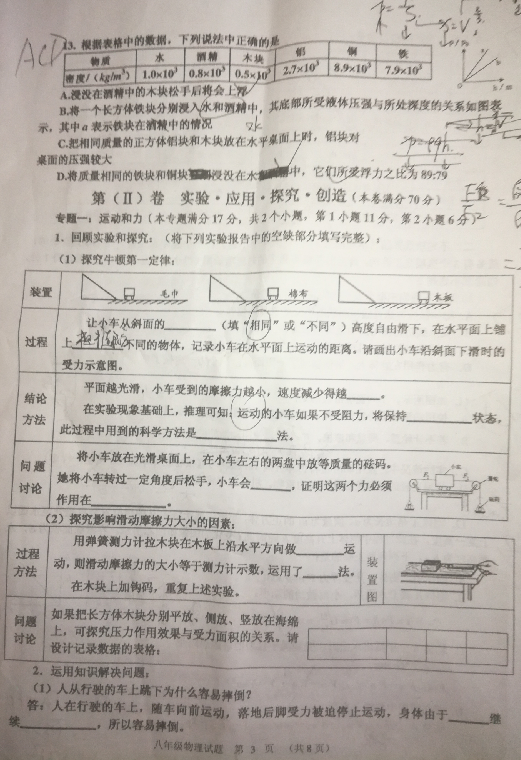 ACD
13. 根据表格中的数据，下列说法中正确的是
物质 水 酒精 木块 铝 铜 铁
密度/（kg/m³） 1.0×10³ 0.8×10³ 0.5×10³ 2.7×10³ 8.9×10³ 7.9×10³
A.浸没在酒精中的木块松手后将会上浮
B.将一个长方体铁块分别浸入水和酒精中，其底部所受液体压强与所处深度的关系如图表
示，其中a表示铁块在酒精中的情况
C.把相同质量的正方体铝块和木块放在水平桌面上时，铝块对
桌面的压强较大
D.将质量相同的铁块和铜块浸没在水中，它们所受浮力之比为 89:79
第（Ⅱ）卷 实验·应用·探究·创造（本卷满分 70 分）
专题一：运动和力（本专题满分 17 分，共 2 个小题，第 1 小题 11 分，第 2 小题 6 分）
1．回顾实验和探究：（将下列实验报告中的空缺部分填写完整）：
（1）探究牛顿第一定律：
装置 毛巾 棉布 木板
过程
让小车从斜面的______（填“相同”或“不同”）高度自由滑下，在水平面上铺
上______不同的物体，记录小车在水平面上运动的距离。请画出小车沿斜面下滑时的
受力示意图。
结论
方法
平面越光滑，小车受到的摩擦力越小，速度减少得越______。
在实验现象基础上，推理可知：运动的小车如果不受阻力，将保持______状态，
此过程中用到的科学方法是______法。
问题
讨论
将小车放在光滑桌面上，在小车左右的两盘中放等质量的砝码。
她将小车转过一定角度后松手，小车会______，证明这两个力必须
作用在______。
（2）探究影响滑动摩擦力大小的因素：
过程
方法
用弹簧测力计拉木块在木板上沿水平方向做______运
动，则滑动摩擦力的大小等于测力计示数，运用了______法。
在木块上加钩码，重复上述实验。
装
置
图
问题
讨论
如果把长方体木块分别平放、侧放、竖放在海绵
上，可探究压力作用效果与受力面积的关系。请
设计记录数据的表格：
2．运用知识解决问题：
（1）人从行驶的车上跳下为什么容易摔倒？
答：人在行驶的车上，随车向前运动，落地后脚受力被迫停止运动，身体由于______继
续______，所以容易摔倒。
八年级物理试题 第 3 页 （共 8 页）